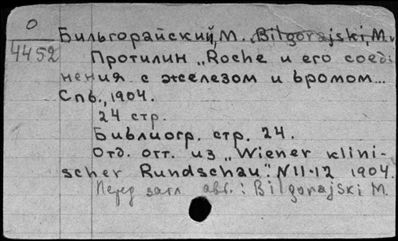 0
4452
Бильгорайский, М. Bilgorajski, M.
Протилин „Roche и его соеди
нения с железом и бромом...
Спб., 1904.
24 стр.
Библиогр. стр. 24.
Отд. отт. из „Wiener klini-
scher Rundschau". N11-12 1904.
Перед загл. авт.: Bilgorajski M.